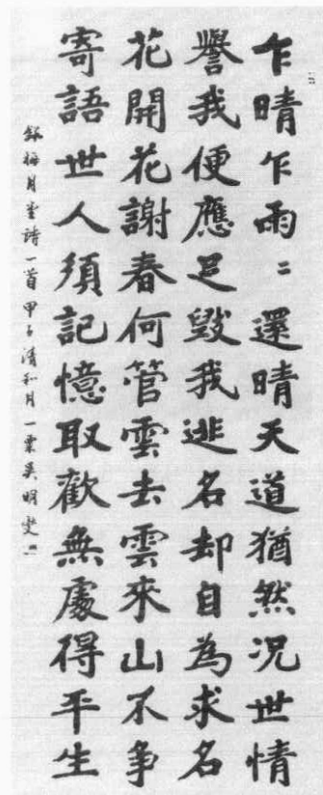 乍晴乍雨〻還晴天道猶然況世情
譽我便應是毀我逃名却自為求名
花開花謝春何管雲去雲來山不争
寄語世人須記憶取歡無處得平生
錄梅月堂詩一首 甲子清和月 一粟吳明燮